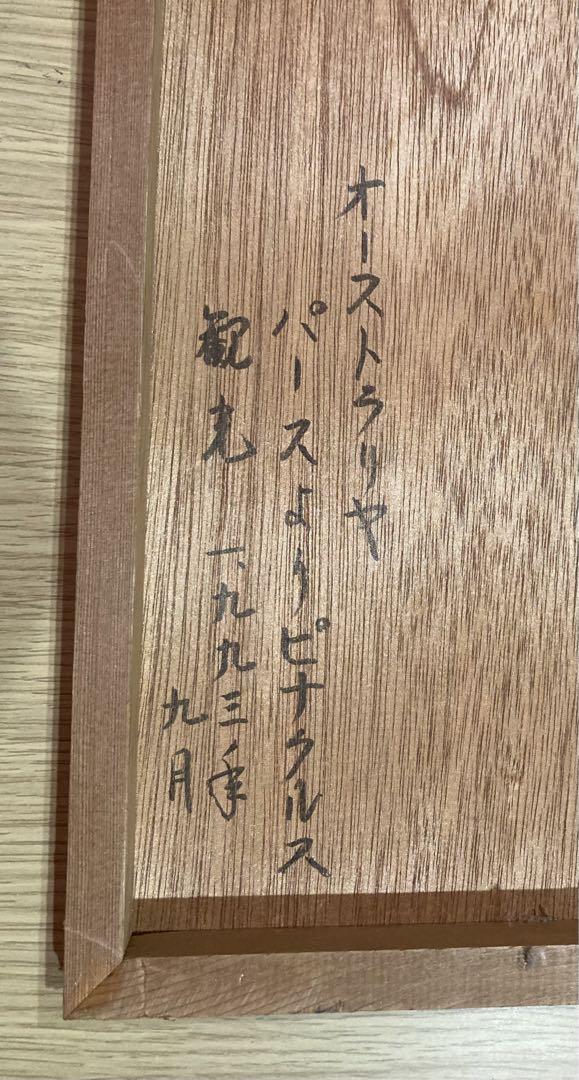 オーストラリヤ
パースよりピナクルス
観光 一、九九三年
九月